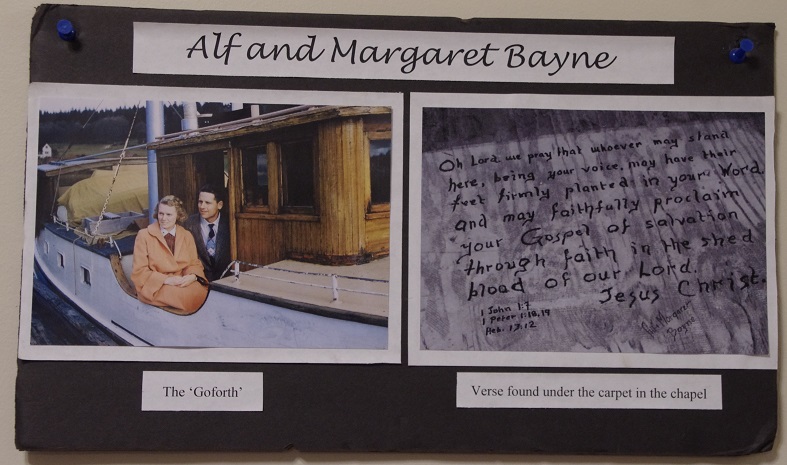 Alf and Margaret Bayne
Oh Lord we pray that whoever may stand
here, being your voice, may have their
feet firmly planted in your Word,
and may faithfully proclaim
your Gospel of salvation
through faith in the shed
blood of our Lord.
Jesus Christ.
1 John 1:7
1 Peter 1:18,19
Heb. 13:12
Bayne
The 'Goforth'
Verse found under the carpet in the chapel